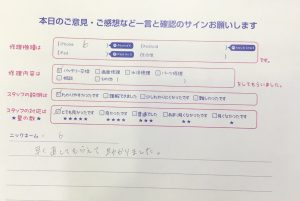 本日のご意見・ご感想など一言と確認のサインお願いします
修理機種は
iPhone 6
Android
iPad
その他
です。
修理内容は
バッテリー交換
画面修理
水没修理
パーツ修理
相談
その他
をしてもらいました。
スタッフの説明は
わかりやすかったです
理解できました
少しわかりにくかったです
難しかったです
スタッフの対応は
★星の数★
とても良かったです
良かったです
普通でした
あまり良くなかったです
良くなかったです
★★★★★
★★★★
★★★
★★
★
ニックネーム: 6
早く直してもらえて助かりました。